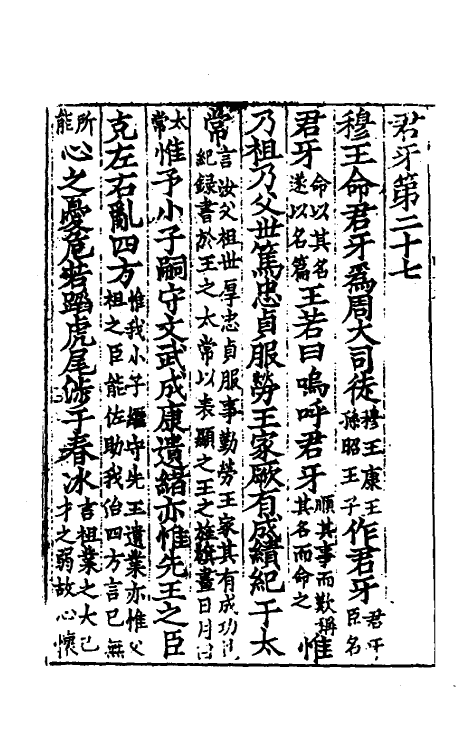 君牙第二十七
穆王命君牙爲周大司徒穆王康王孫昭王子作君牙君牙臣名
君牙命以其名遂以名篇王若曰嗚呼君牙順其事而歎稱其名而命之惟
乃祖乃父世篤忠貞服勞王家厥有成績紀于太
常言汝父祖世厚忠貞服事勤勞王家其有成功見紀録書於王之太常以表顯之王之旌旗畫日月曰
太常惟予小子嗣守文武成康遺緒亦惟先王之臣
克左右亂四方惟我小子繼守先王遺業亦惟父祖之臣能佐助我治四方言己無
所能心之憂危若蹈虎尾涉于春冰言祖業之大己才之弱故心懷